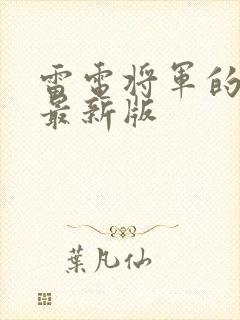 雷電将軍的
最新版
葉凡仙